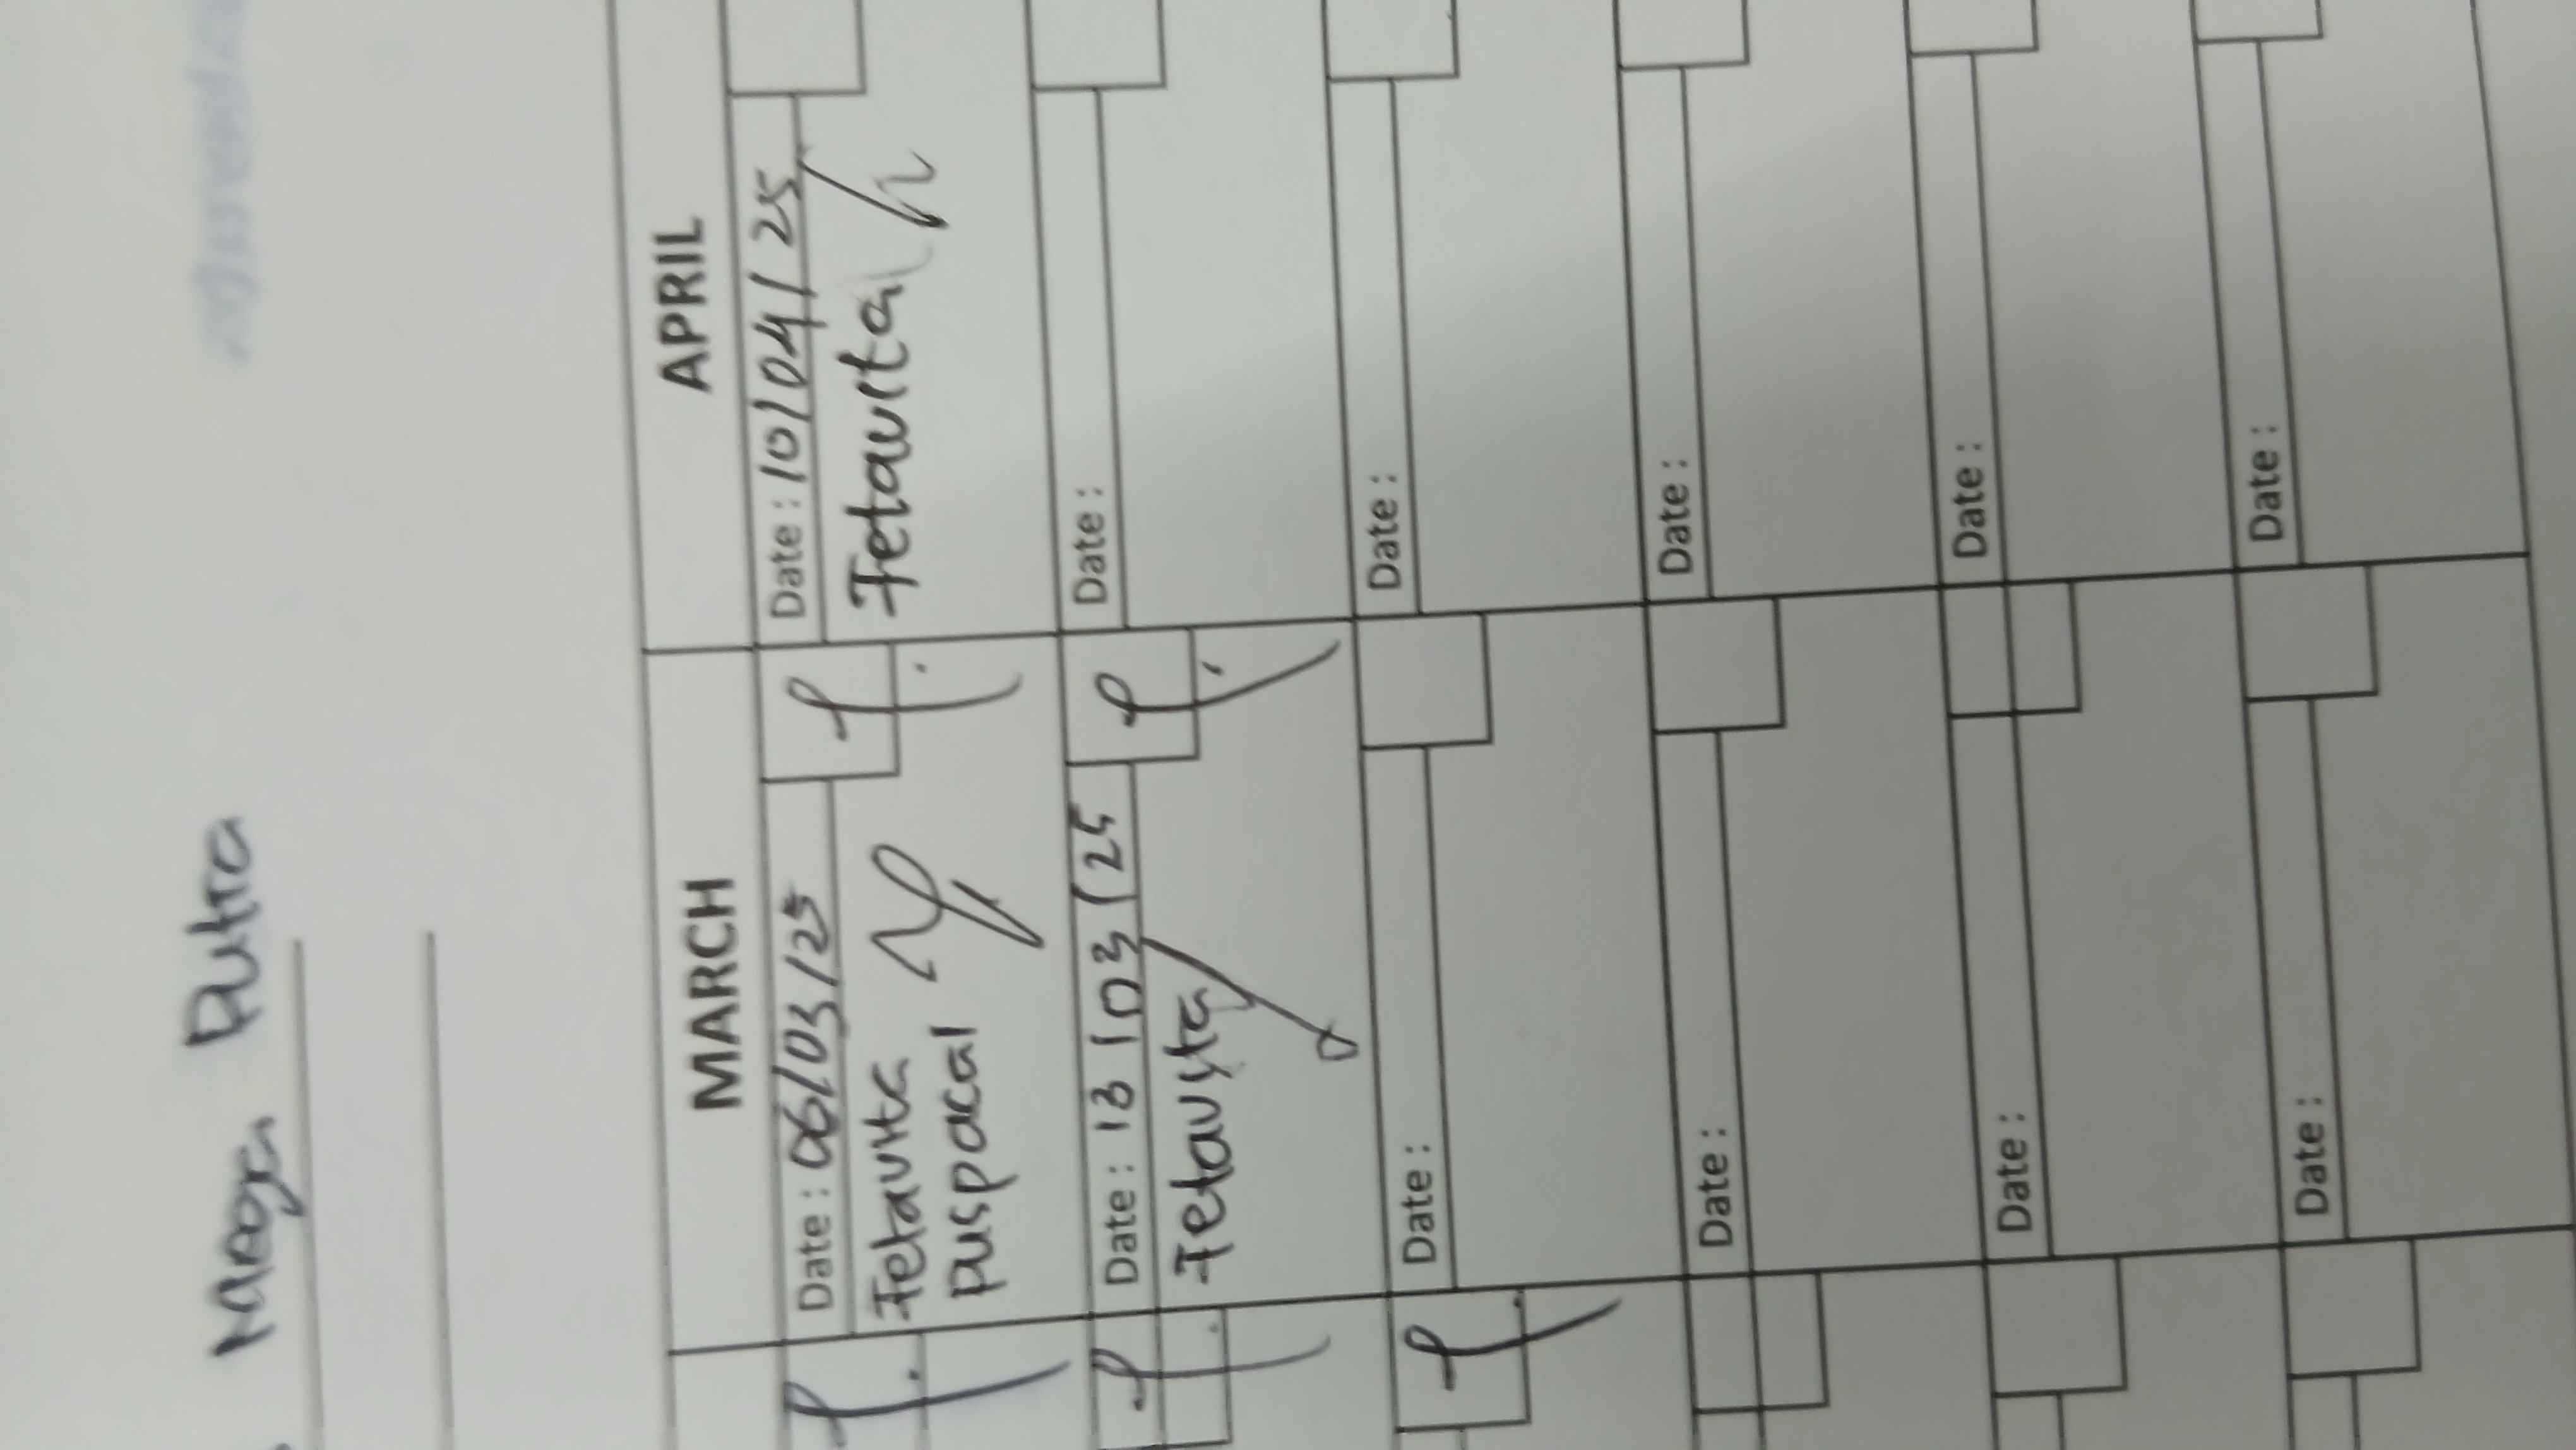 Putra
MARCH
APRIL
Date : 06/03/25
Fetavita
puspacal
Date : 10/04/25
Fetavita
Date : 13/03/25
Fetavita
Date :
Date :
Date :
Date :
Date :
Date :
Date :
Date :
Date :